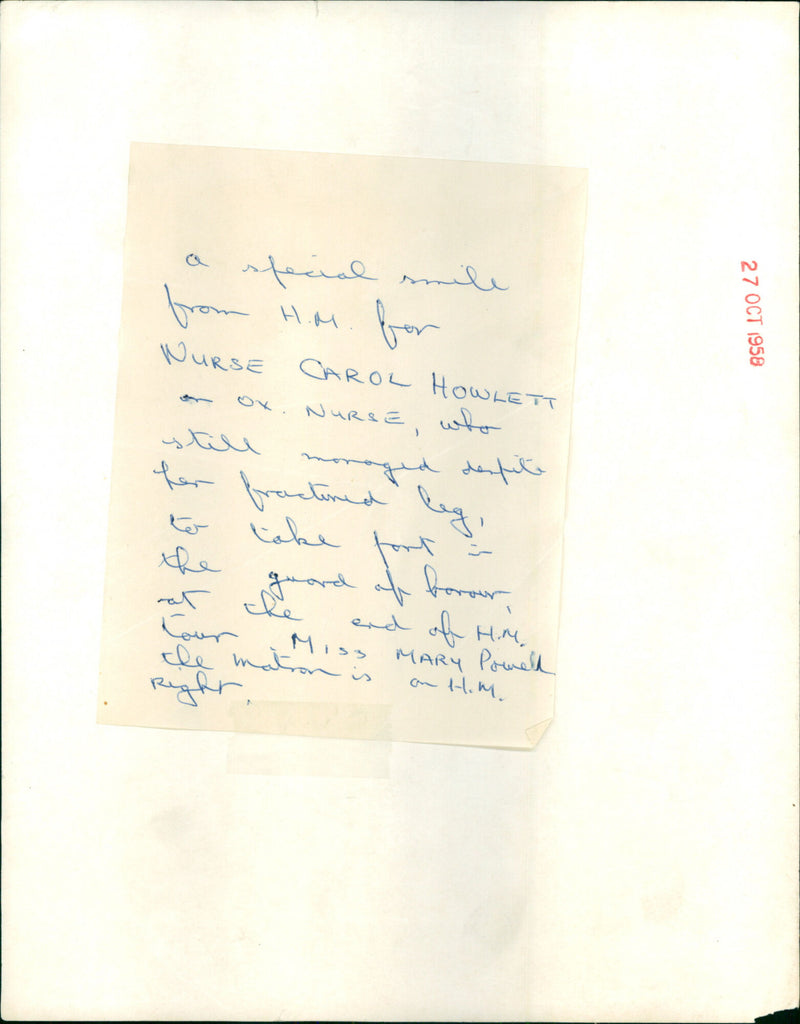 a special smile
from H.M. for
NURSE CAROL HOWLETT
an OX. NURSE, who
still managed despite
her fractured leg,
to take part in
the guard of honour,
at the end of H.M.
tour. MISS MARY Powell
the matron is on H.M.
Right.
27 OCT 1958